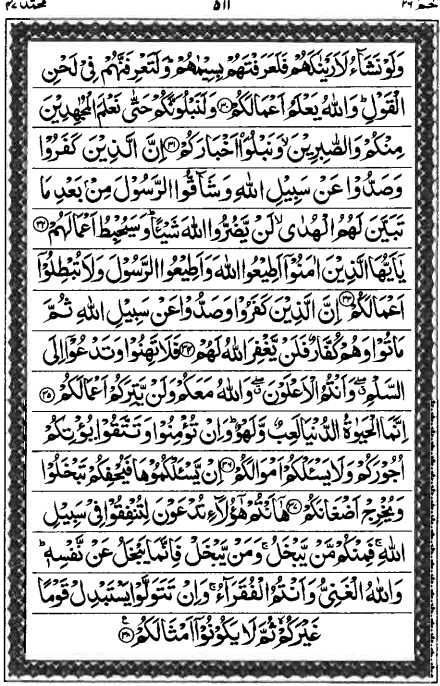 حٰمٓ ٢٦ ٥١١ محمّد ٤٧
وَلَوْ نَشَآءُ لَاَرَيْنٰكَهُمْ فَلَعَرَفْتَهُمْ بِسِيْمٰهُمْ ؕ وَلَتَعْرِفَنَّهُمْ فِيْ لَحْنِ
الْقَوْلِ ؕ وَاللّٰهُ يَعْلَمُ اَعْمَالَكُمْ ﴿٣٠﴾ وَلَنَبْلُوَنَّكُمْ حَتّٰى نَعْلَمَ الْمُجٰهِدِيْنَ
مِنْكُمْ وَالصّٰبِرِيْنَ ۙ وَنَبْلُوَا۠ اَخْبَارَكُمْ ﴿٣١﴾ اِنَّ الَّذِيْنَ كَفَرُوْا
وَصَدُّوْا عَنْ سَبِيْلِ اللّٰهِ وَشَآقُّوا الرَّسُوْلَ مِنْۢ بَعْدِ مَا
تَبَيَّنَ لَهُمُ الْهُدٰى ۙ لَنْ يَّضُرُّوا اللّٰهَ شَيْـًٔا ؕ وَسَيُحْبِطُ اَعْمَالَهُمْ ﴿٣٢﴾
يٰۤاَيُّهَا الَّذِيْنَ اٰمَنُوْۤا اَطِيْعُوا اللّٰهَ وَاَطِيْعُوا الرَّسُوْلَ وَلَا تُبْطِلُوْۤا
اَعْمَالَكُمْ ﴿٣٣﴾ اِنَّ الَّذِيْنَ كَفَرُوْا وَصَدُّوْا عَنْ سَبِيْلِ اللّٰهِ ثُمَّ
مَاتُوْا وَهُمْ كُفَّارٌ فَلَنْ يَّغْفِرَ اللّٰهُ لَهُمْ ﴿٣٤﴾ فَلَا تَهِنُوْا وَتَدْعُوْۤا اِلَى
السَّلْمِ ۖ وَاَنْتُمُ الْاَعْلَوْنَ ۖ وَاللّٰهُ مَعَكُمْ وَلَنْ يَّتِرَكُمْ اَعْمَالَكُمْ ﴿٣٥﴾
اِنَّمَا الْحَيٰوةُ الدُّنْيَا لَعِبٌ وَّلَهْوٌ ؕ وَاِنْ تُؤْمِنُوْا وَتَتَّقُوْا يُؤْتِكُمْ
اُجُوْرَكُمْ وَلَا يَسْـَٔلْكُمْ اَمْوَالَكُمْ ﴿٣٦﴾ اِنْ يَّسْـَٔلْكُمُوْهَا فَيُحْفِكُمْ تَبْخَلُوْا
وَيُخْرِجْ اَضْغَانَكُمْ ﴿٣٧﴾ هٰۤاَنْتُمْ هٰۤؤُلَآءِ تُدْعَوْنَ لِتُنْفِقُوْا فِيْ سَبِيْلِ
اللّٰهِ ۚ فَمِنْكُمْ مَّنْ يَّبْخَلُ ۚ وَمَنْ يَّبْخَلْ فَاِنَّمَا يَبْخَلُ عَنْ نَّفْسِهٖ ؕ
وَاللّٰهُ الْغَنِيُّ وَاَنْتُمُ الْفُقَرَآءُ ۚ وَاِنْ تَتَوَلَّوْا يَسْتَبْدِلْ قَوْمًا
غَيْرَكُمْ ۙ ثُمَّ لَا يَكُوْنُوْۤا اَمْثَالَكُمْ ﴿٣٨﴾